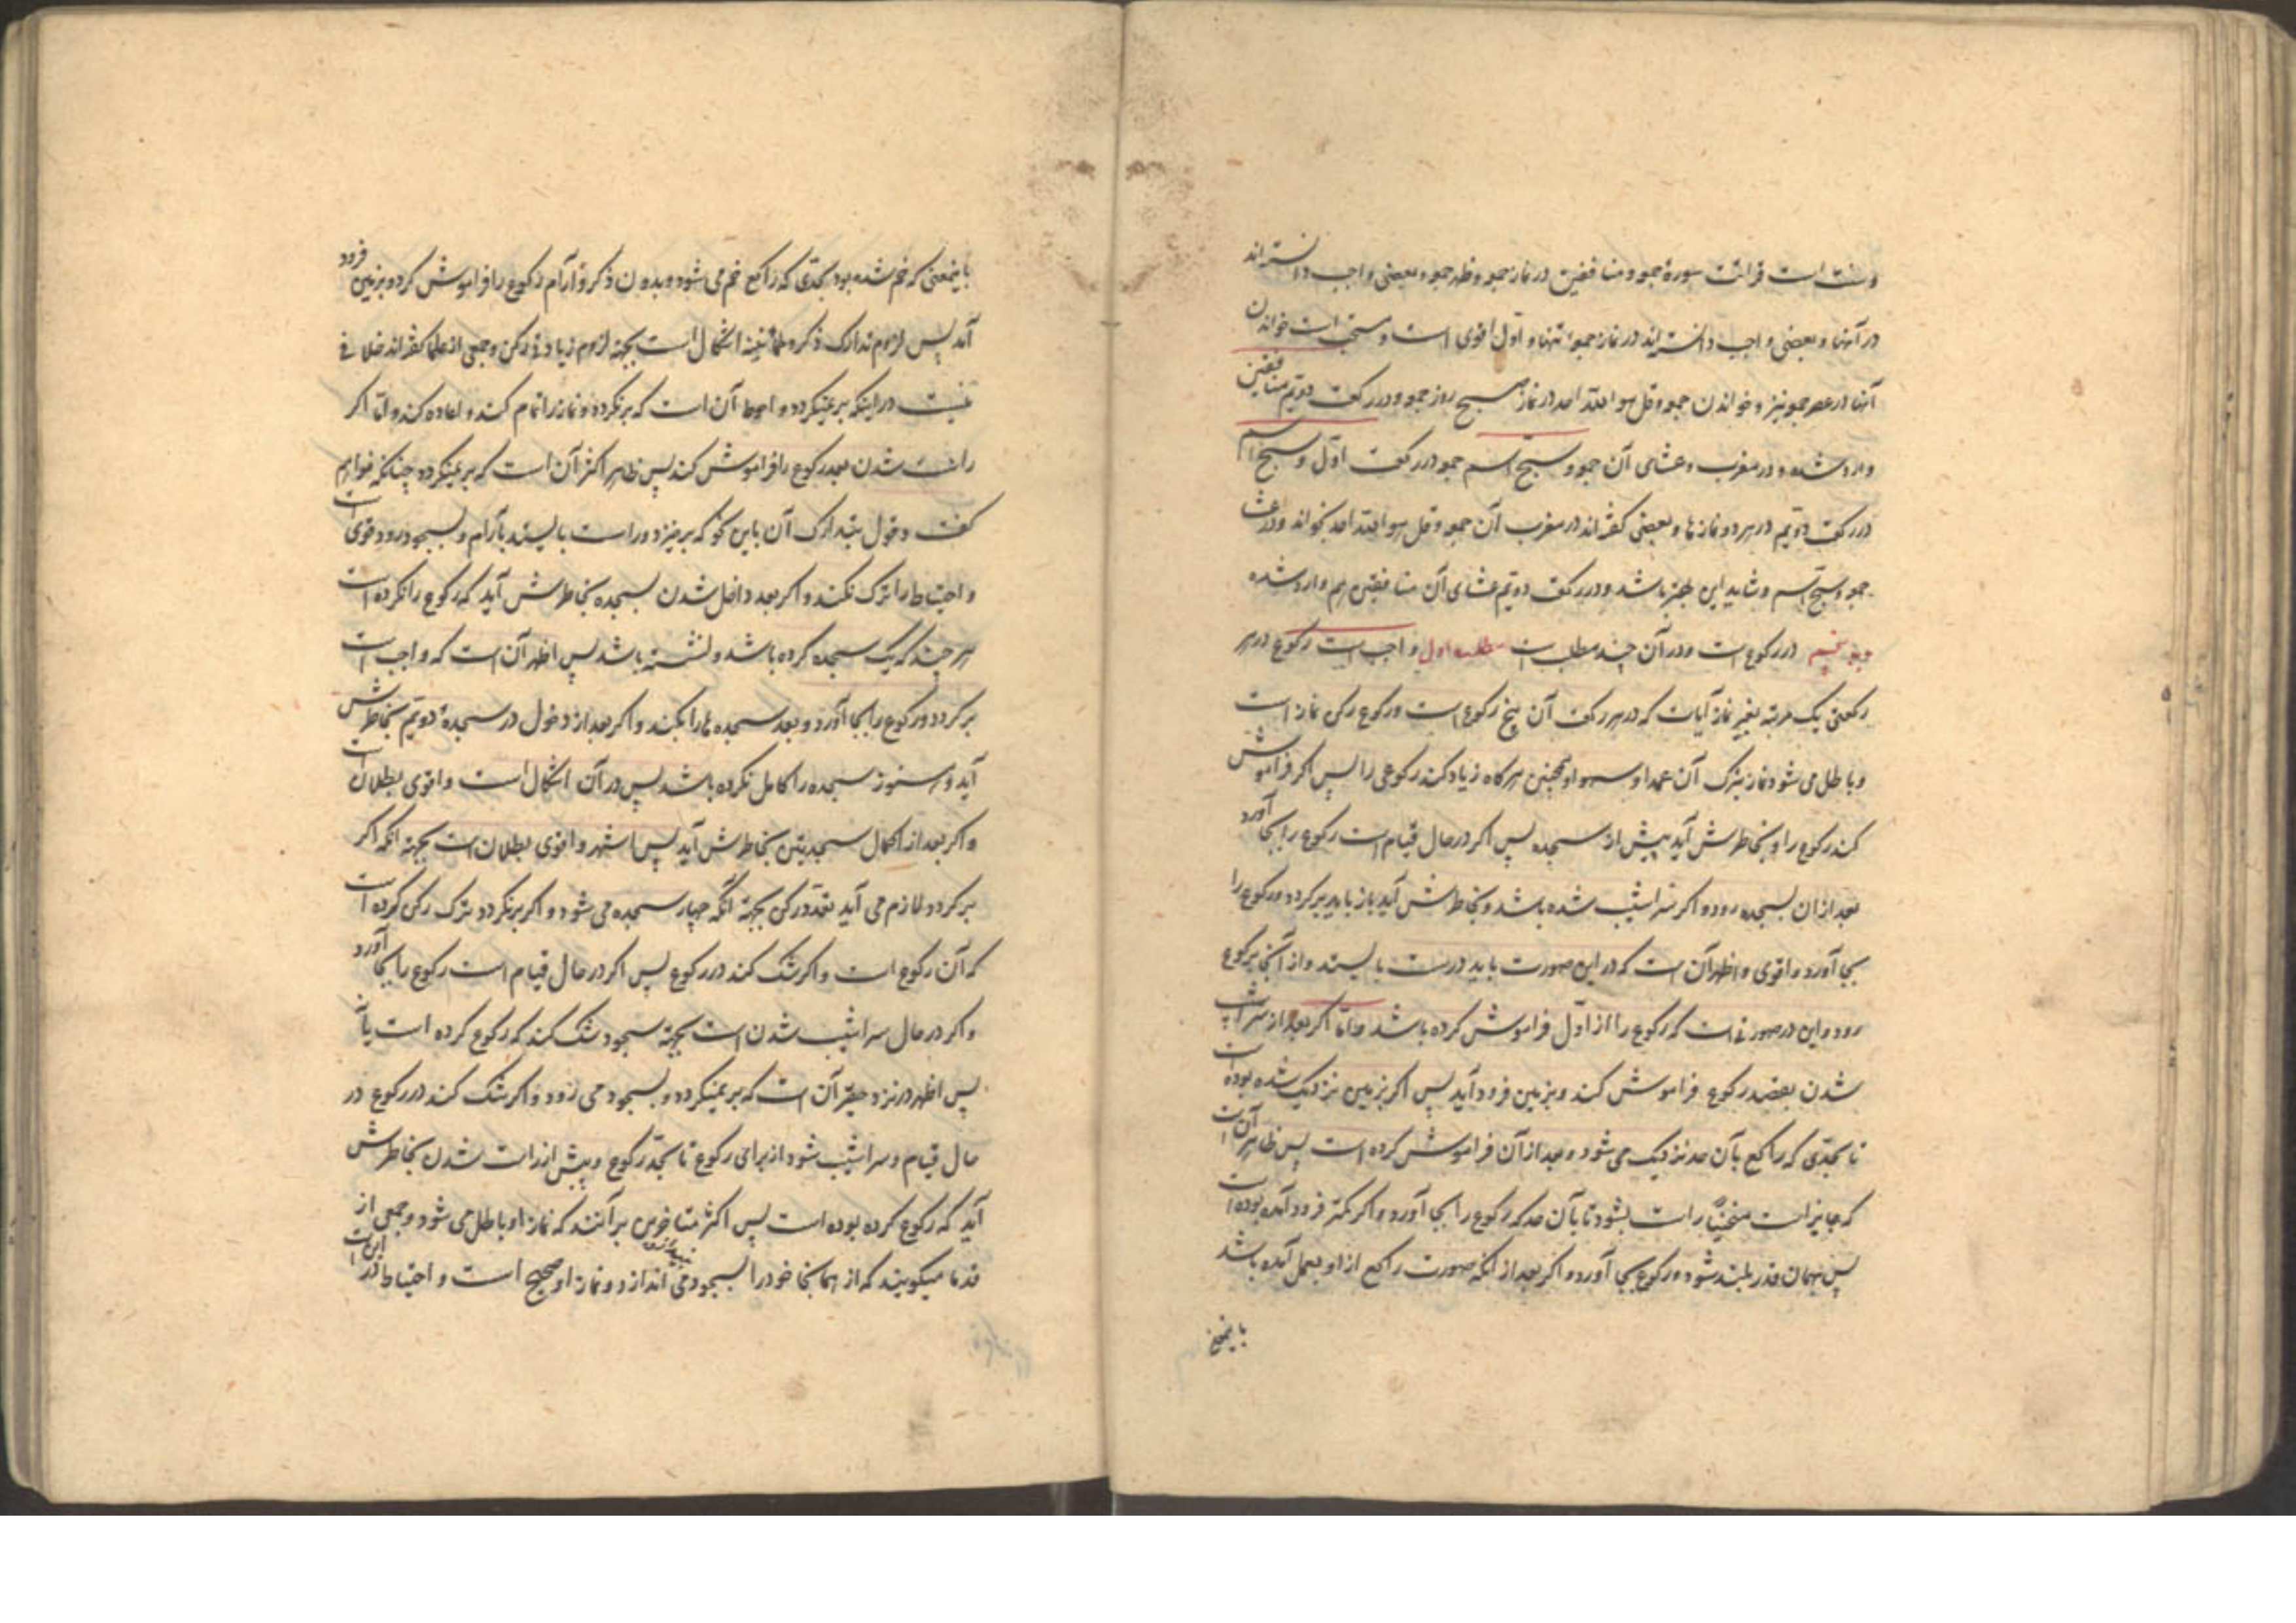 و سنت است قرائت سورهٔ جمعه و منافقین در نماز جمعه و ظهر جمعه و بعضی واجب دانسته‌اند
در آنها و بعضی واجب دانسته‌اند در نماز جمعه تنها و اول اقوی است و مستحب است خواندن
آنها در عصر جمعه نیز و خواندن جمعه و قل هو الله احد در نماز صبح روز جمعه و در رکعت دویم منافقین
وارد شده و در مغرب و عشای آن جمعه و سبح اسم جمعه در رکعت اول و سبح اسم
در رکعت دویم در هر دو نمازها و بعضی گفته‌اند در مغرب آن جمعه و قل هو الله احد بخواند و در عشا
جمعه و سبح اسم و شاید این بهتر باشد و در رکعت دویم عشای آن منافقین هم وارد شده
پنجم در رکوع است و در آن چند مطلب است مطلب اول واجب است رکوع در هر
رکعتی یک مرتبه بغیر نماز آیات که در هر رکعت آن پنج رکوع است و رکوع رکن نماز است
و باطل می شود نماز بترک آن عمدا و سهوا و همچنین هرگاه زیاد کند رکوعی را پس اگر فراموش
کند رکوع را و بخاطرش آید پیش از سجده پس اگر در حال قیام است رکوع را بجا آورد
بعد از ان بسجده رود و اگر سراشیب شده باشد و بخاطرش آید باز باید برگردد و رکوع را
بجا آورد و اقوی و اظهر آن است که در این صورت باید درست بایستد و از آنجا برکوع
رود و این در صورتی است که رکوع را از اول فراموش کرده باشد و اما اگر بعد از سراشیب
شدن بقصد رکوع فراموش کند و بزمین فرود آید پس اگر بزمین نزدیک شده بوده است
تا بحدی که راکع بآن حد نزدیک می شود و بعد از آن فراموش کرده است پس ظاهر آن است
که جایز است منحنیا راست بشود تا بآن حد که رکوع را بجا آورد و اگر کمتر فرود آمده بوده است
پس بهمان قدر بلند شود و رکوع بجا آورد و اگر بعد از آنکه صورت راکع از او بعمل آمده باشد
باینمعنی
باینمعنی که خم شده بود بحدی که راکع خم می شود و بدون ذکر و آرام رکوع را فراموش کرده بزمین فرود
آمد پس لزوم تدارک ذکر و طمأنینه اشکال است بجهة لزوم زیادتی رکن و جمعی از علما گفته‌اند خلافی
نیست در اینکه بر نمیگردد و احوط آن است که برنگردد و نماز را تمام کند و اعاده کند و اما اگر
راست شدن بعد رکوع را فراموش کند پس ظاهر اکثر آن است که بر نمیگردد چنانکه خواهم
گفت و قول بتدارک آن باین نحو که برخیزد و راست بایستد بآرام و بسجود رود قوی است
و احتیاط را ترک نکند و اگر بعد داخل شدن بسجده بخاطرش آید که رکوع را نکرده است
هر چند که یک سجده کرده باشد و نشسته باشد پس اظهر آن است که واجب است
برگردد و رکوع را بجا آورد و بعد سجده ها را بکند و اگر بعد از دخول در سجدهٔ دویم بخاطرش
آید و هنوز سجده را کامل نکرده باشد پس در آن اشکال است و اقوی بطلان است
و اگر بعد از اکمال سجدیتن بخاطرش آید پس اشهر و اقوی بطلان است بجهة آنکه اگر
برگردد لازم می آید تعدد رکن بجهة آنکه چهار سجده می شود و اگر برنگردد ترک رکن کرده است
که آن رکوع است و اگر شک کند در رکوع پس اگر در حال قیام است رکوع را بجا آورد
و اگر در حال سراشیب شدن است بجهة سجود شک کند که رکوع کرده است یا نه
پس اظهر در نزد حقیر آن است که بر نمیگردد و بسجود می رود و اگر شک کند در رکوع در
حال قیام و سراشیب شود از برای رکوع تا بحد رکوع و پیش از راست شدن بخاطرش
آید که رکوع کرده بوده است پس اکثر متاخرین بر آنند که نماز او باطل می شود و جمعی از
قدما میگویند که از همانجا خود را بسجود می اندازد و نماز او صحیح است و احتیاط در این است